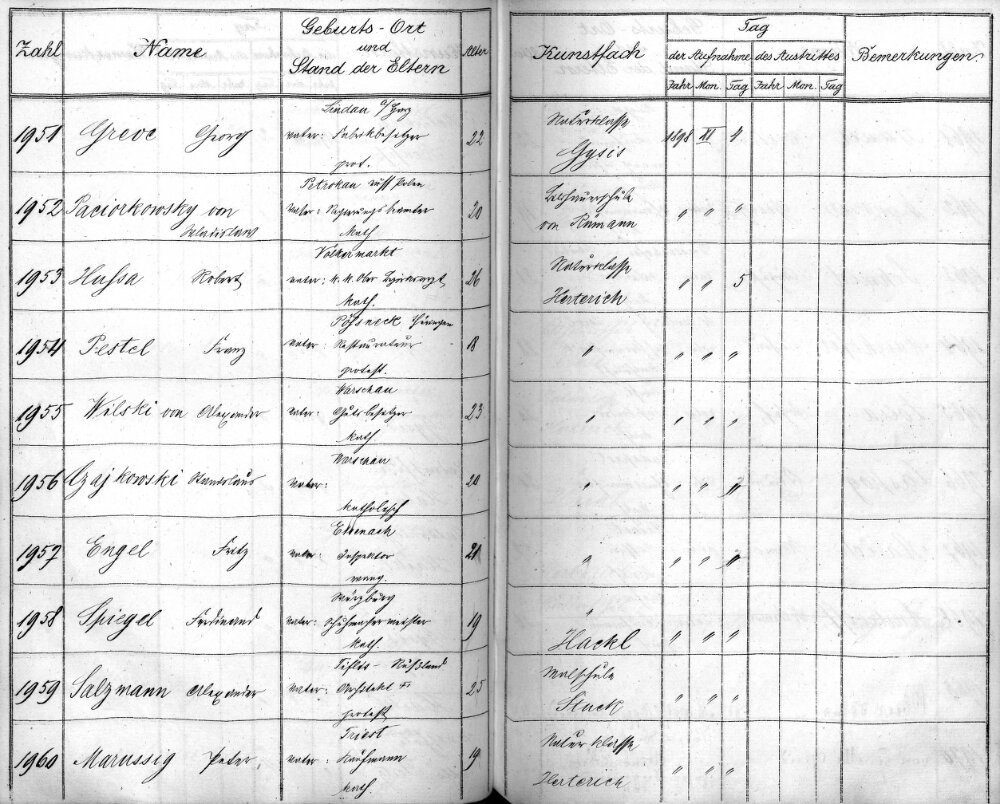 Zahl Name Geburts-Ort und Stand der Eltern Alter Kunstfach Tag Bemerkungen.
der Aufnahme des Austrittes
Jahr Mon. Tag Jahr Mon. Tag
Lindau a/Harz Naturklasse
1951 Greve Georg Vater: Fabrikbesitzer 22 1898 XI 4
prot. Gysis
Petrokau russ Polen Bildhauerschule
1952 Paciorkowsky von Vater: Regierungsbeamter 20 " " "
Wladislaus Kath. von Rümann
Völkermarkt Naturklasse
1953 Hussa Robert Vater: k. k. Ober Bezirksarzt 26 " " 5
kath. Herterich
Pössneck Thüringen
1954 Pestel Franz Vater: Restaurateur 18 " " " "
protest.
Warschau
1955 Wilski von Alexander Vater: Gutsbesitzer 23 " " " "
kath
Warschau
1956 Czajkowski Stanislaus Vater: 20 " " " "
katholisch
1957 Engel Fritz Vater: Inspektor 21 " " " "
evang.
Würzburg "
1958 Spiegel Ferdinand Vater: Schuhmachermeister 19 " " "
Kath. Hackl
Tiflis - Rußland Malschule
1959 Salzmann Alexander Vater: Architekt 25 " " "
protest Stuck
Triest Naturklasse
1960 Marussig Peter, Vater: Kaufmann 19 " " "
kath. Herterich